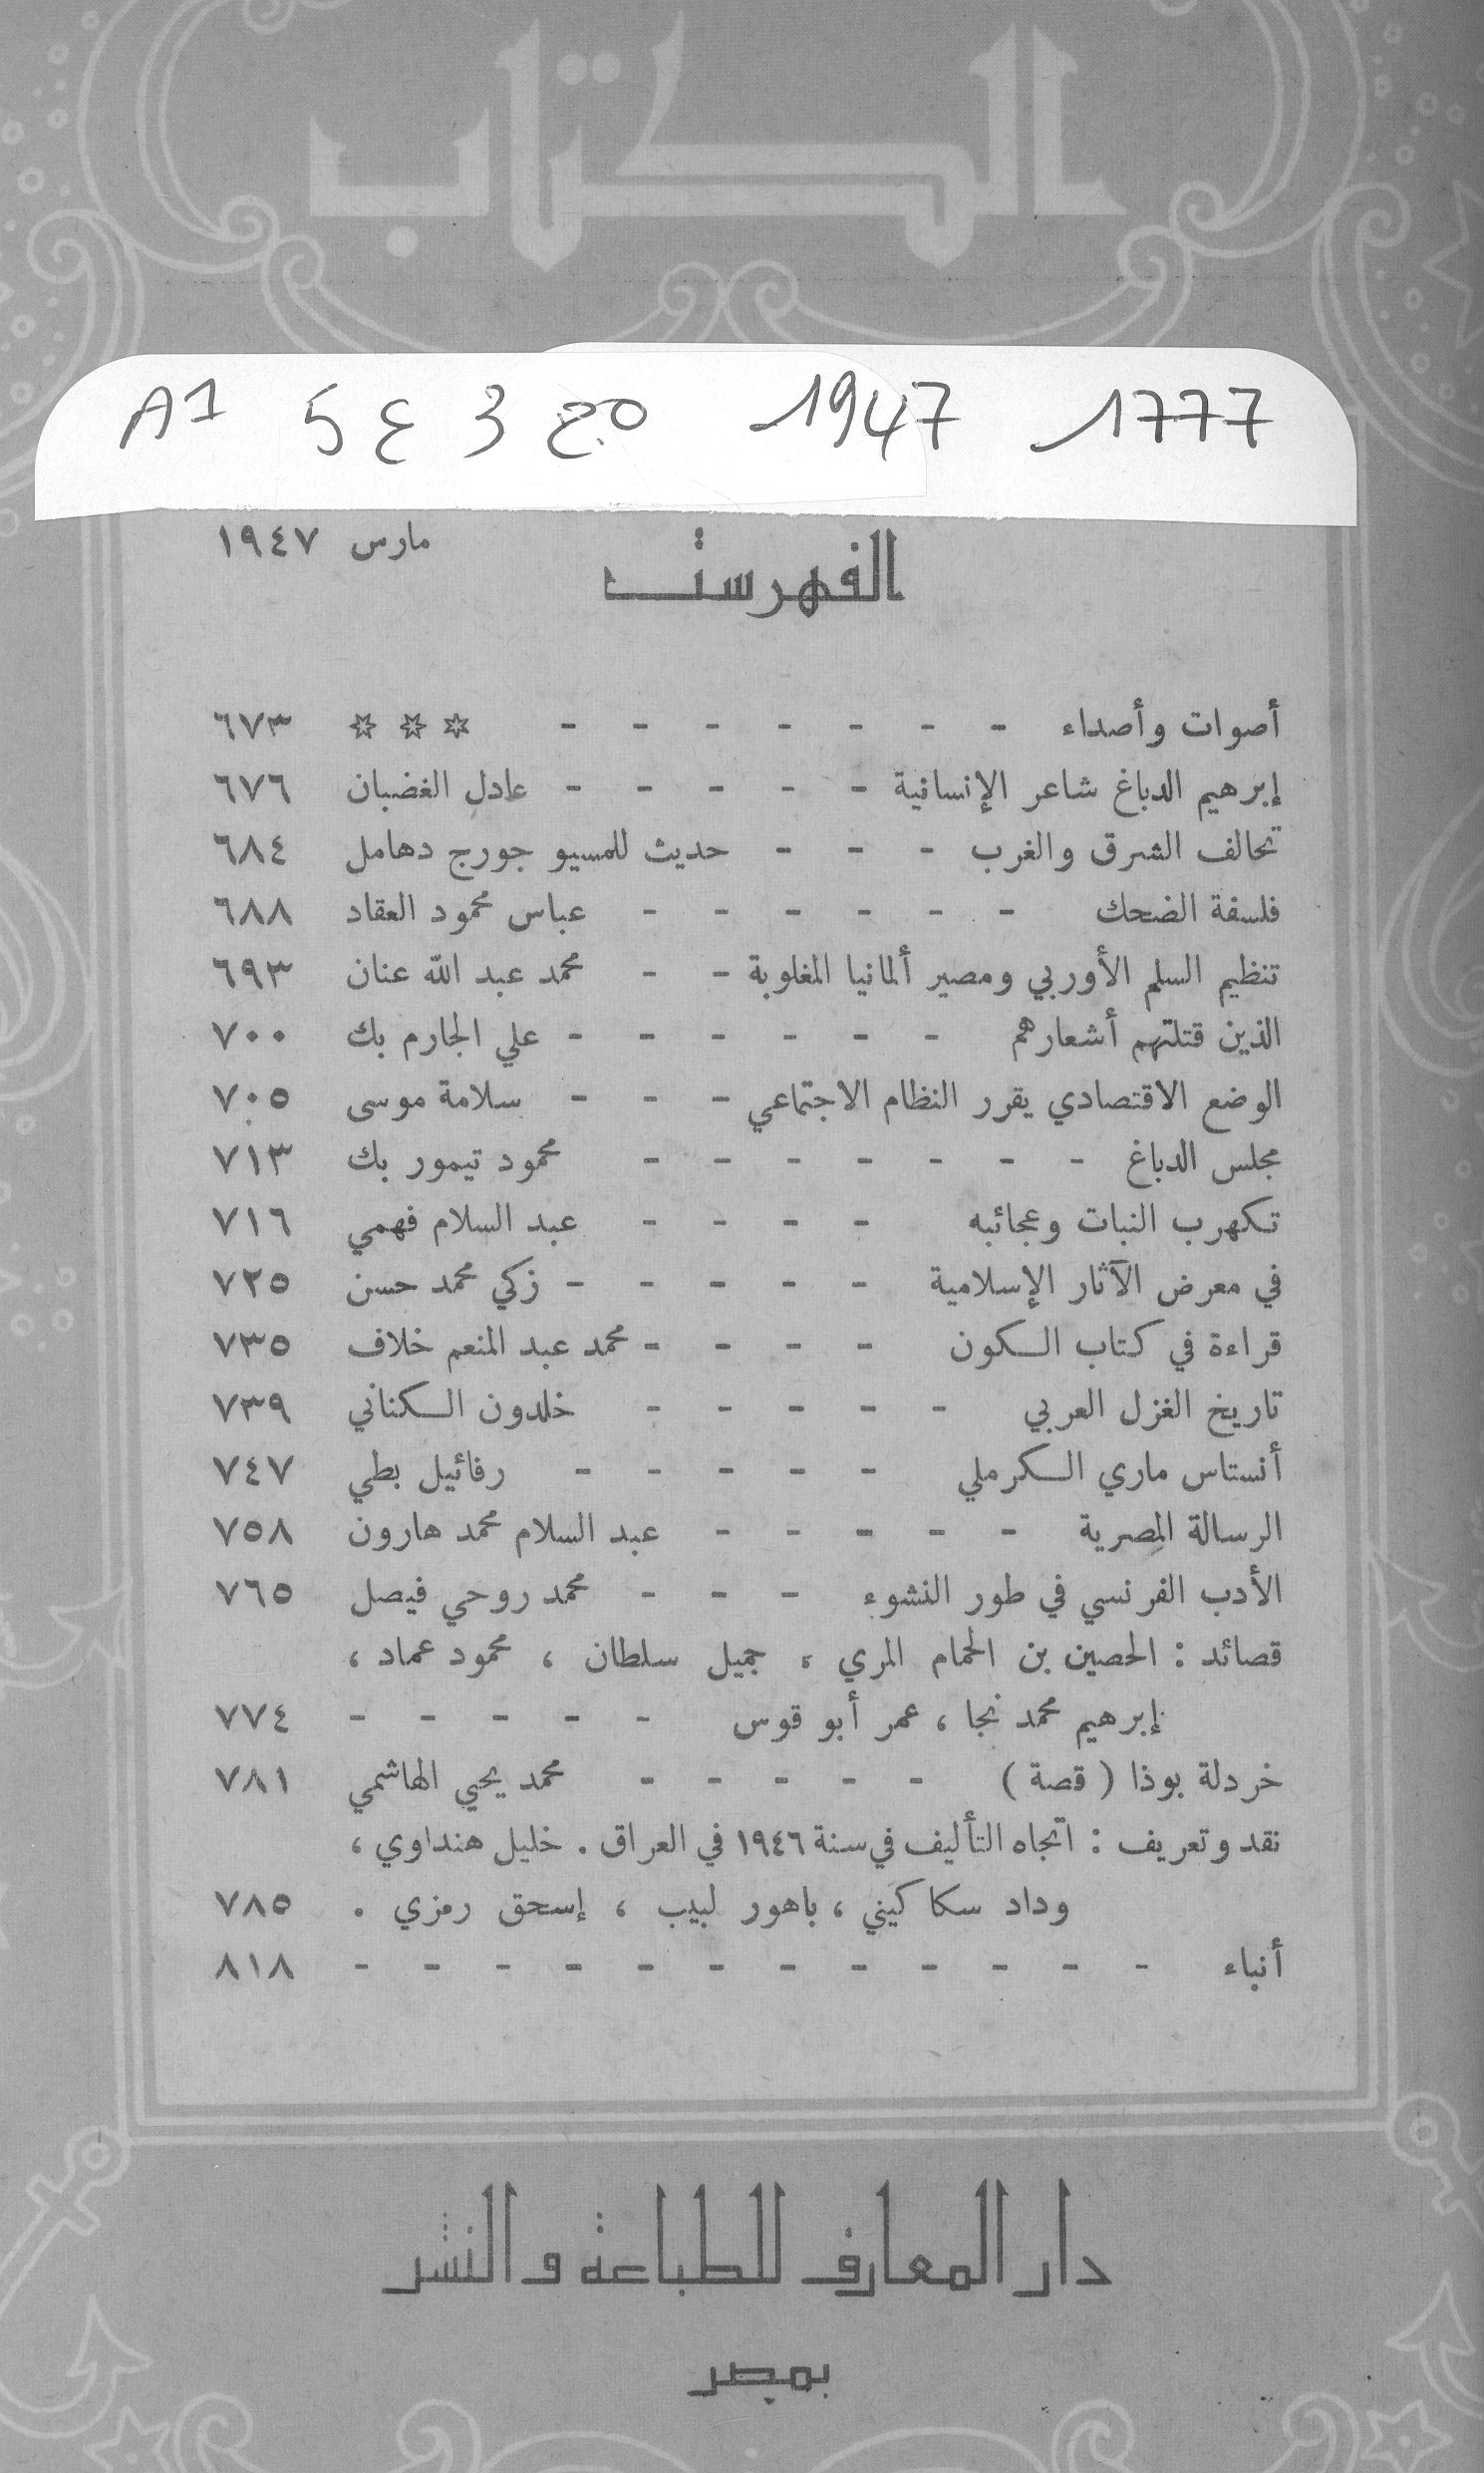 الكتاب
A1 5 ع 3 ج 1947 1777
الفهرست
مارس ١٩٤٧
أصوات وأصداء - - - - - - - ☆ ☆ ☆ ٦٧٣
إبرهيم الدباغ شاعر الإنسانية - - - - - عادل الغضبان ٦٧٦
تحالف الشرق والغرب - - - حديث للمسيو جورج دهامل ٦٨٤
فلسفة الضحك - - - - - - عباس محمود العقاد ٦٨٨
تنظيم السلم الأوربي ومصير ألمانيا المغلوبة - - محمد عبد الله عنان ٦٩٣
الذين قتلتهم أشعارهم - - - - - - علي الجارم بك ٧٠٠
الوضع الاقتصادي يقرر النظام الاجتماعي - - - سلامة موسى ٧٠٥
مجلس الدباغ - - - - - - - محمود تيمور بك ٧١٣
تكهرب النبات وعجائبه - - - - عبد السلام فهمي ٧١٦
في معرض الآثار الإسلامية - - - - - زكي محمد حسن ٧٢٥
قراءة في كتاب الكون - - - - محمد عبد المنعم خلاف ٧٣٥
تاريخ الغزل العربي - - - - - خلدون الكناني ٧٣٩
أنستاس ماري الكرملي - - - - - رفائيل بطي ٧٤٧
الرسالة المصرية - - - - - عبد السلام محمد هارون ٧٥٨
الأدب الفرنسي في طور النشوء - - - محمد روحي فيصل ٧٦٥
قصائد : الحصين بن الحمام المري ، جميل سلطان ، محمود عماد ،
إبرهيم محمد نجا ، عمر أبو قوس - - - - - ٧٧٤
خردلة بوذا ( قصة ) - - - - - محمد يحيي الهاشمي ٧٨١
نقد وتعريف : اتجاه التأليف في سنة ١٩٤٦ في العراق . خليل هنداوي ،
وداد سكاكيني ، باهور لبيب ، إسحق رمزي . ٧٨٥
أنباء - - - - - - - - - - - - ٨١٨
دار المعارف للطباعة والنشر
بمصر